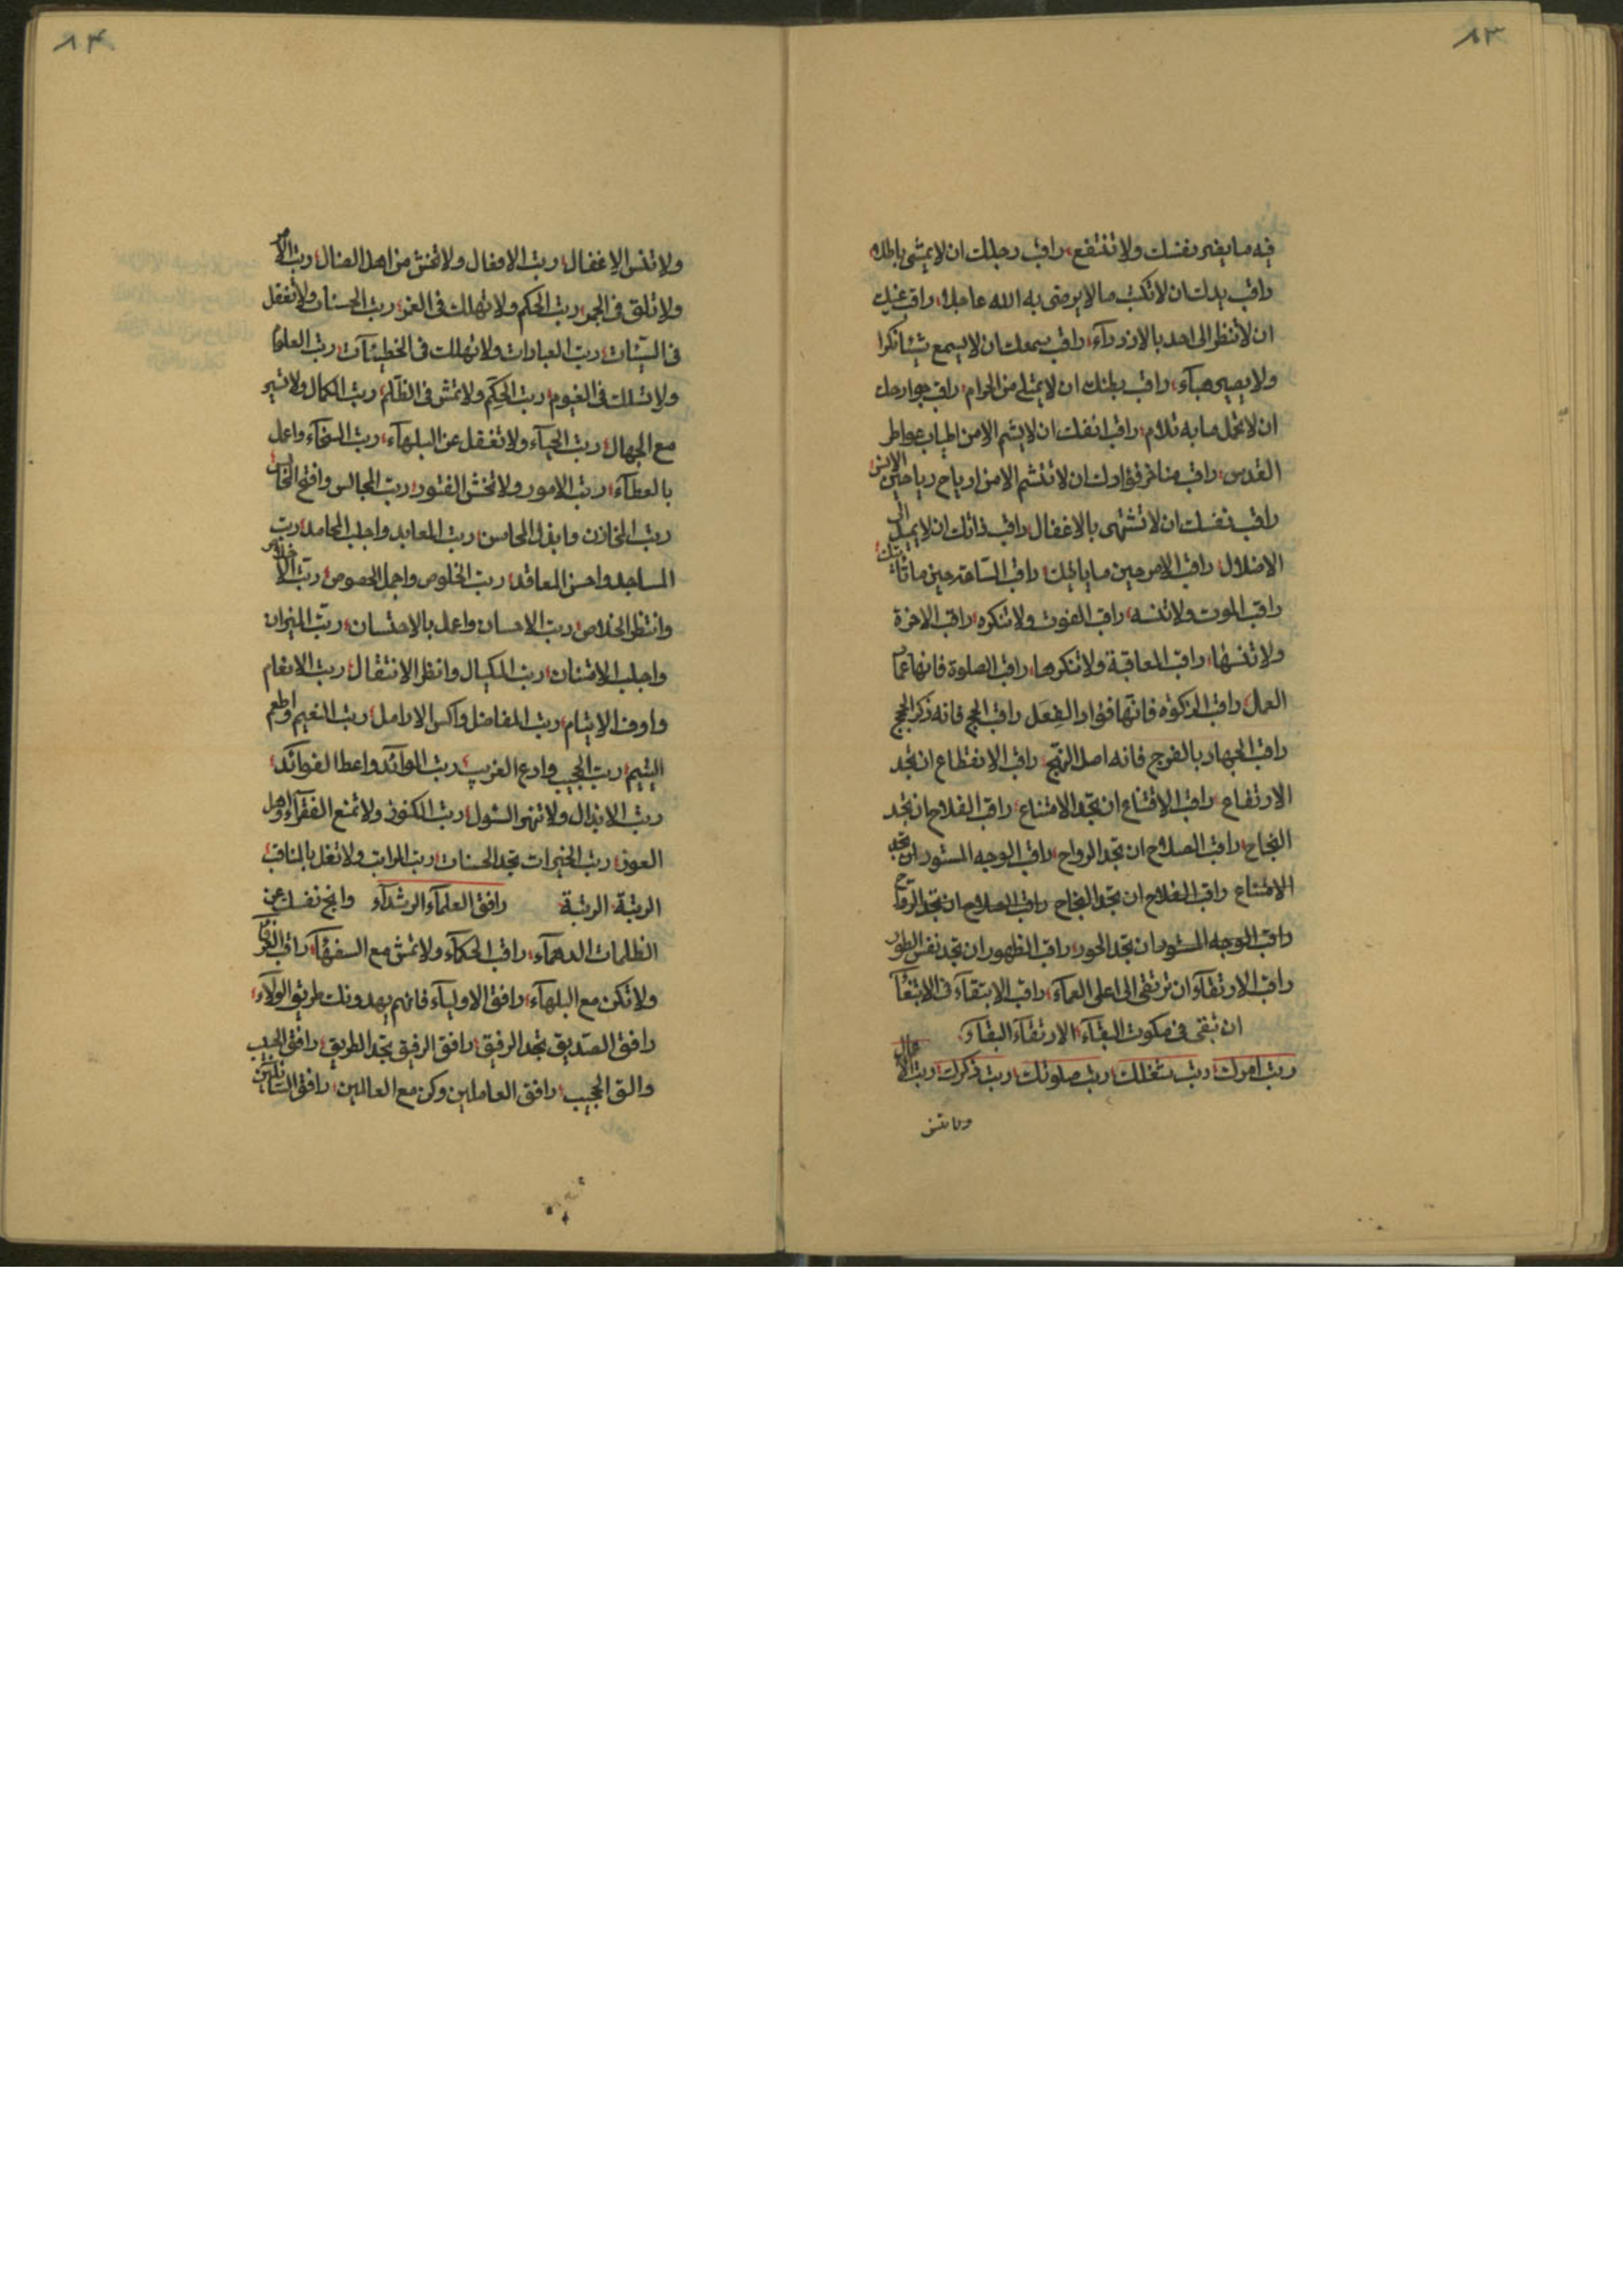 ٨٣
فيه ما يضر بنفسك ولا تنتفع، راقب رجلك ان لا يمشى باطلا،
راقب يدك ان لا تكتب ما لا يرضى به الله عاجلا، راقب عينك
ان لا تنظر الى احد بالازدراء، راقب سمعك ان لا يسمع شيئا نكرا
ولا يصير هباء، راقب بطنك ان لا يمتلى من الحرام، راقب جوارحك
ان لا تحمل ما به تلام، راقب انفك ان لا يشم الا من اطياب عواطر
القدس، راقب مناخر فؤادك ان لا تنشم الا من ارياح رياحين الانس
راقب نفسك ان لا تشتهى بالاغفال، راقب ذاتك ان لا يميل الى
الاضلال، راقب الامر حين ما ياتيك، راقب الساعة حين ما تاتيك
راقب الموت ولا تنسه، راقب الفوت ولا تنكره، راقب الاخرة
ولا تنسها، راقب المعاقبة ولا تنكرها، راقب الصلوة فانها عماد
العمل، راقب الزكوة فانها فؤاد الفعل، راقب الحج فانه ذكر الحجج
راقب الجهاد بالفرج فانه اصل النهج، راقب الانقطاع ان تجد
الارتفاع، راقب الاقتناع ان تجد الامتناع، راقب الفلاح ان تجد
النجاح، راقب الصلاح ان تجد الرواح، راقب الوجه المستور ان تجد
الامتناع راقب الفلاح ان تجد النجاح راقب الصلاح ان تجد الرواح
راقب الوجه المستور ان تجد الحور، راقب الظهور ان تجد نفس الطور
راقب الارتقاء ان ترتقى الى اعلى العماء، راقب الابتقاء فى الابتغاء
ان تبقى فى ملكوت البقاء، الارتقاء البقاء،
رتب امرك، رتب شغلك، رتب صلوتك، رتب ذكرك، رتب الاعمال
ولا تنس
٨٤
ولا تنس الاغفال، رتب الافعال ولا تخش من اهل الضال، رتب الامر
ولا تلق فى الجمر، رتب الحكم ولا تهلك فى الغمر، رتب الحسنات ولا تغفل
فى السيئات، رتب العبادات ولا تهلك فى الخطيئات، رتب العلوم
ولا تسلك فى الغيوم، رتب الحكم ولا تمش فى الظلم، رتب الكمال ولا تسير
مع الجهال، رتب الحياء ولا تغفل عن البلهاء، رتب السخاء واعمل
بالعطاء، رتب الامور ولا تخش الفتور، رتب المجالس وافتح
رتب المخازن وابذل المحاسن، رتب المعابد واجلب المحامد، رتب
المساجد واحسن المعاقد، رتب الخلوص واجمل الخصوص، رتب الاخلاص
وانتظر الخلاص، رتب الاحسان واعمل بالاحتسان، رتب الميزان
واجلب الامتنان، رتب المكيال وانظر الانتقال، رتب الانعام
واوف الايتام، رتب المفاضل واكس الارامل، رتب النعيم واطعم
اليتيم، رتب الجيب وادع الغريب، رتب الموائد واعط الفوائد،
رتب الابذال ولا تنهر السئول، رتب الكنوز ولا تمنع الفقراء واهل
العوز، رتب الخيرات تجد الحسنات، رتب المراتب ولا تغل بالمناقب
الرتبة، الرتبة، رافق العلماء الرشداء وانج نفسك عن
الظلمات الدهماء، راقب الحكماء ولا تمش مع السفهاء، راقب العرفاء
ولا تكن مع البلهاء، رافق الاولياء فانهم يهدونك طريق الولاء،
رافق الصديق تجد الرفيق، رافق الرفيق تجد الطريق، رافق الحبيب
والق المجيب، رافق العاملين وكن مع العالمين، رافق السالكين